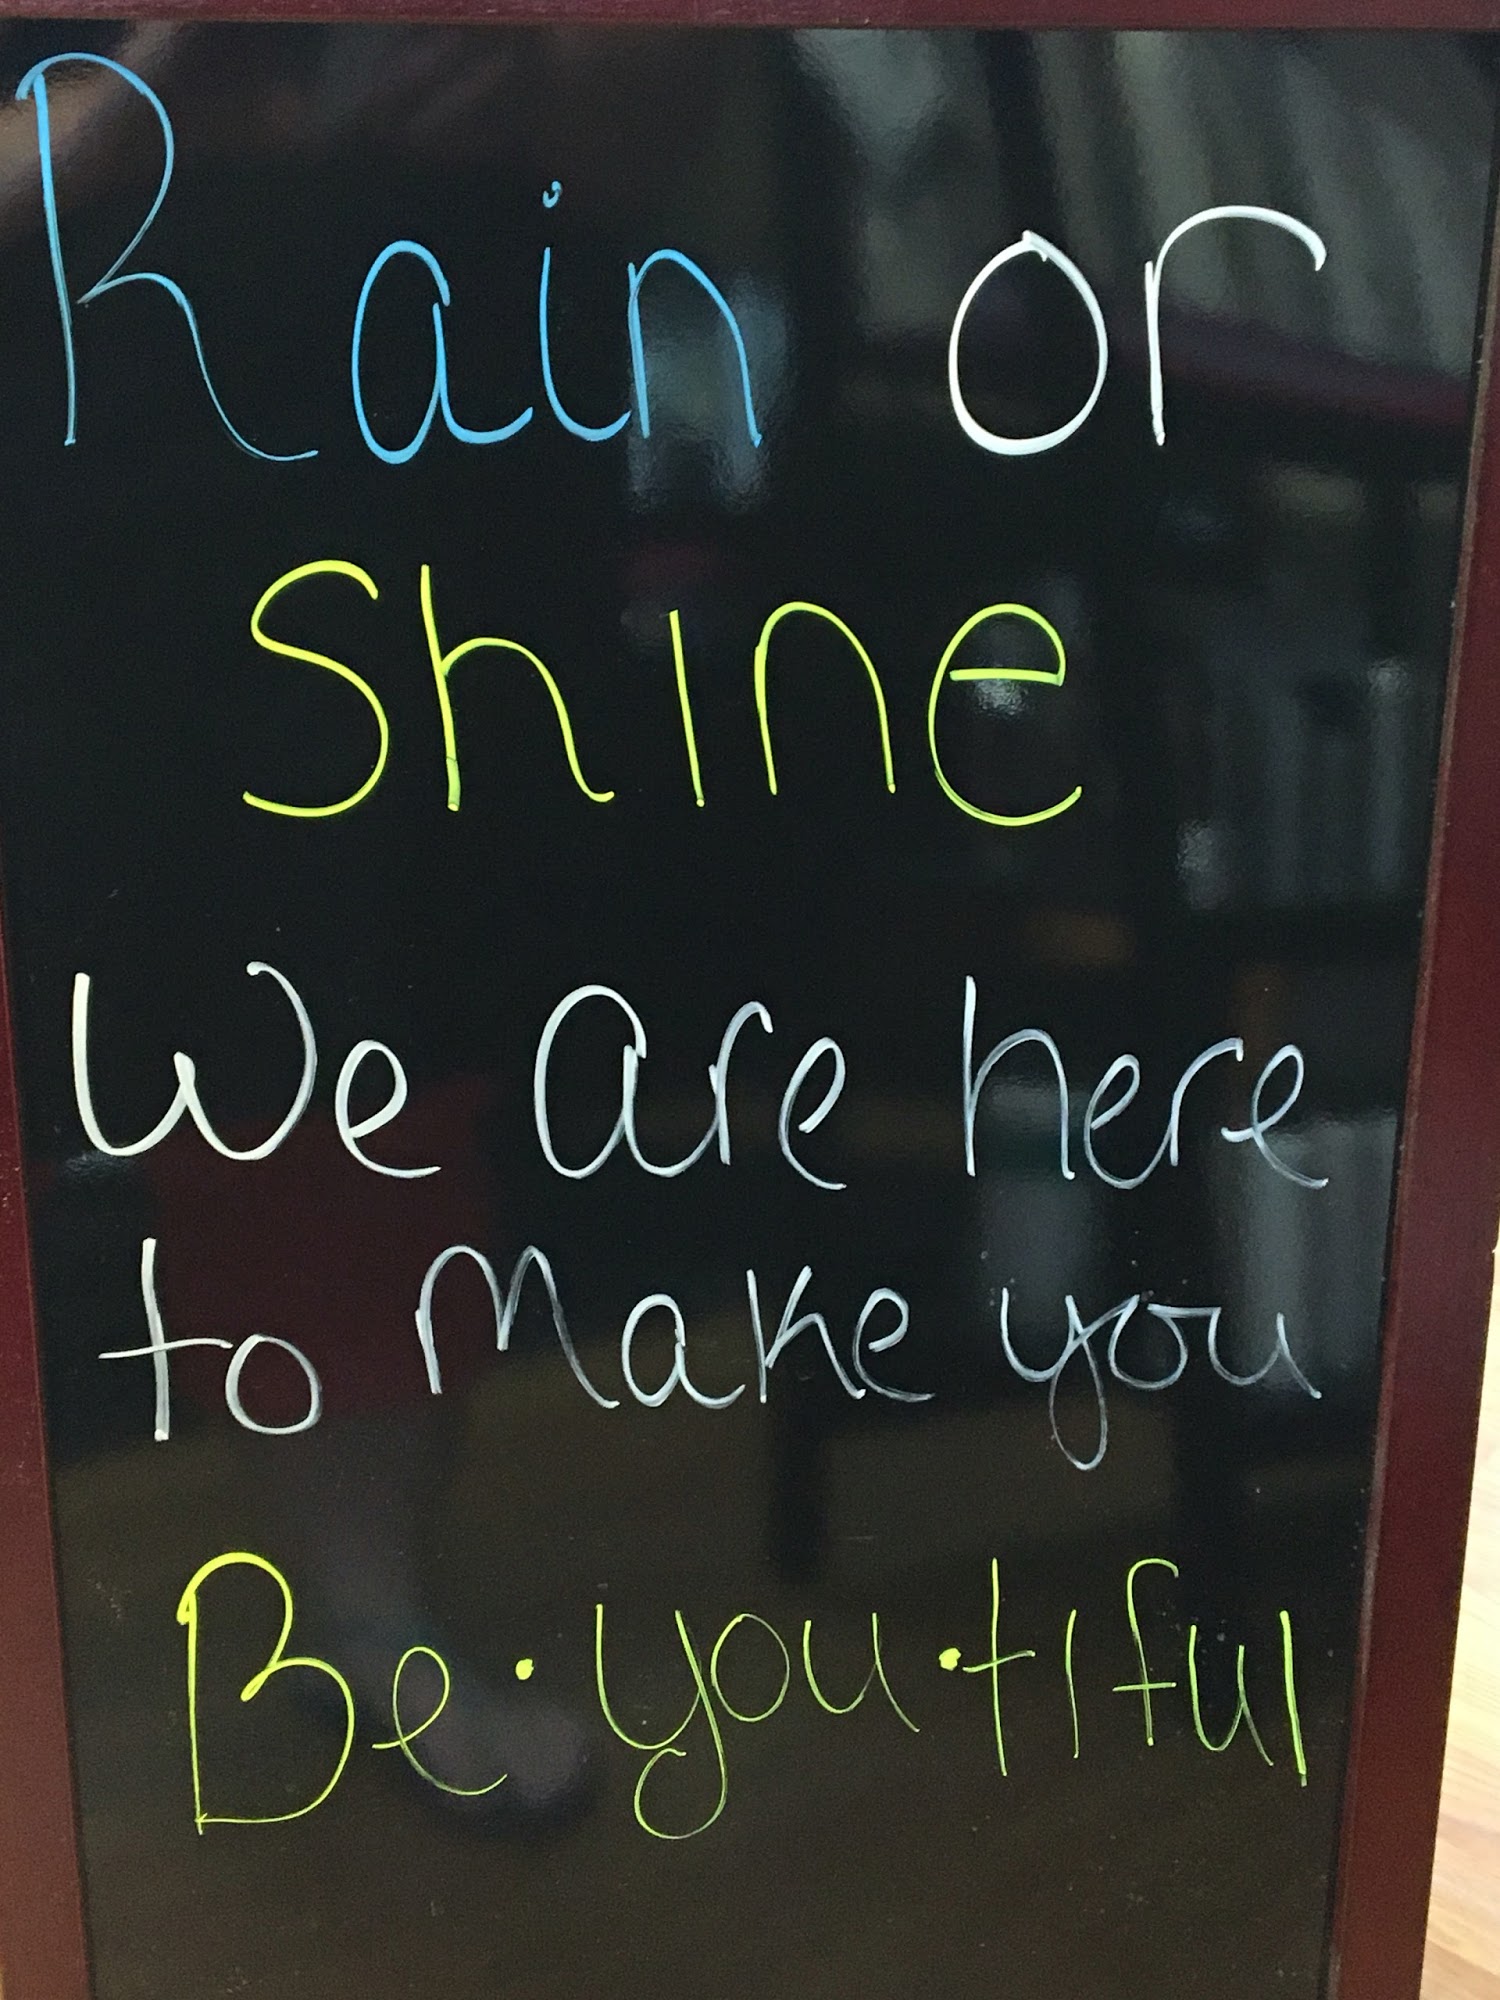 Rain or
Shine
We are here
to Make you
Be·you·tiful